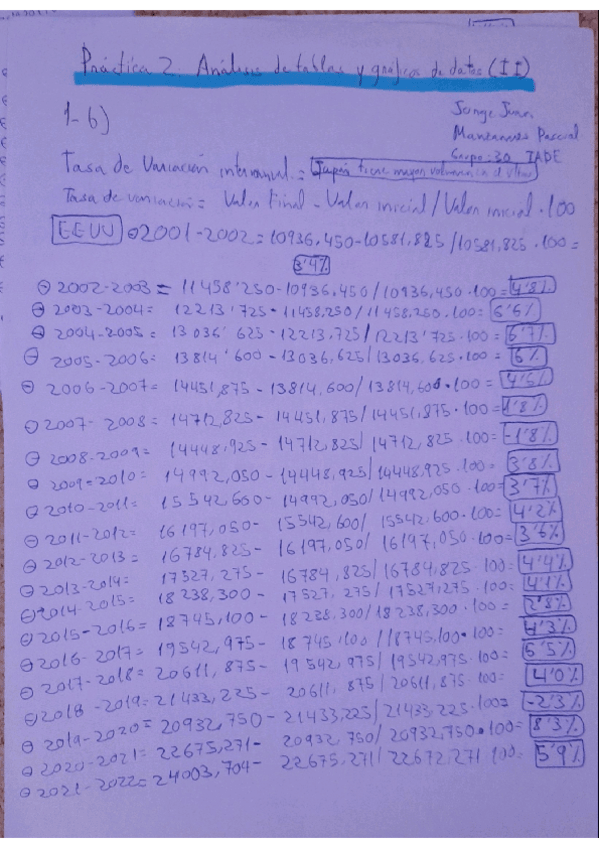 Práctica 2. Análisis de tablas y gráficos de datos (II)
1-6)
Jorge Juan
Manzanares Pascual
Grupo: 30 IADE
Tasa de Variación interanual = Japón tiene mayor
Tasa de variación = Valor Final - Valor inicial / Valor inicial · 100
EEUU 2001-2002 = 10936,450-10581,825 /10581,825 · 100 =
3'4%
2002-2003 = 11458'250-10936,450/10936,450 ·100= 4'8%
2003-2004= 12213'725-11458,250/11458,250 ·100= 6'6%
2004-2005= 13036'625-12213,725/12213'725 ·100= 6'7%
2005-2006= 13814'600-13036,625/13036,625 ·100= 6%
2006-2007= 14451,875 - 13814,600/13814,600 ·100= 4'6%
2007-2008= 14712,825- 14451,875/14451,875 ·100= 1'8%
2008-2009= 14448,925 - 14712,825/14712,825 ·100= -1'8%
2009-2010= 14992,050 - 14448,925/14448,925 ·100= 3'8%
2010-2011= 15542,600- 14992,050/14992,050 ·100= 3'7%
2011-2012= 16197,050- 15542,600/ 15542,600 ·100= 4'2%
2012-2013= 16784,825- 16197,050/ 16197,050 ·100= 3'6%
2013-2014= 17527,275- 16784,825/16784,825 ·100= 4'4%
2014-2015= 18238,300- 17527,275/17527,275 ·100= 4'1%
2015-2016= 18745,100- 18238,300/18238,300 ·100= 2'8%
2016-2017= 19542,975- 18745,100/18745,100 ·100= 4'3%
2017-2018= 20611,875- 19542,975/19542,975 ·100= 5'5%
2018-2019= 21433,225- 20611,875/20611,875 ·100= 4'0%
2019-2020= 20932,750- 21433,225/21433,225 ·100= -2'3%
2020-2021= 22675,271- 20932,750/20932,750 ·100= 8'3%
2021-2022= 24003,704- 22675,271/22672,271 ·100= 5'9%